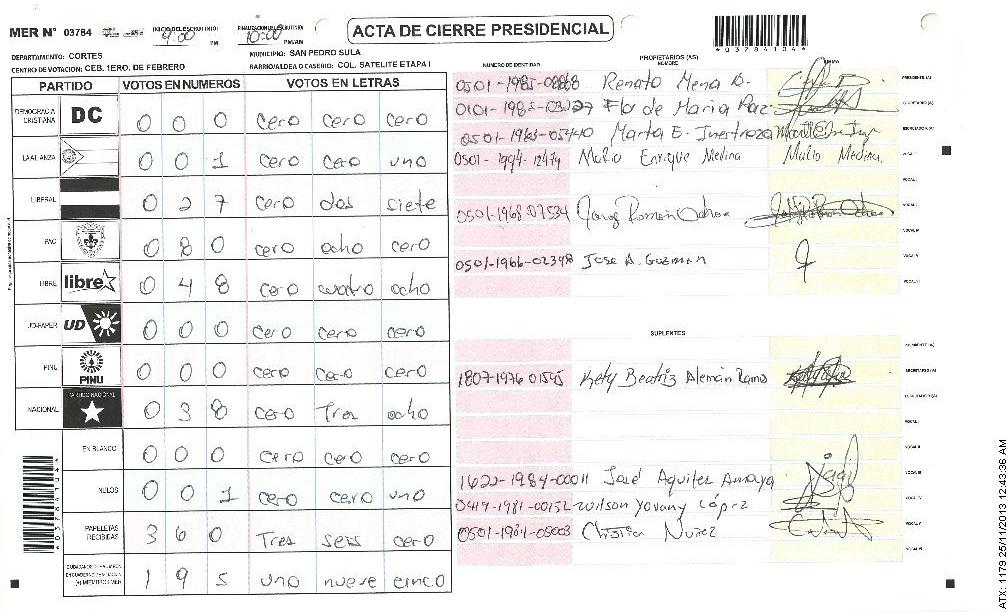 ACTA DE CIERRE PRESIDENCIAL
MER N° 03784
9:00 PM
10:00 PM/AM
*037841044*
DEPARTAMENTO: CORTES
MUNICIPIO: SAN PEDRO SULA
CENTRO DE VOTACION: CEB. 1ERO. DE FEBRERO
BARRIO/ALDEA O CASERIO: COL. SATELITE ETAPA I
PARTIDO VOTOS EN NUMEROS VOTOS EN LETRAS
DEMOCRACIA CRISTIANA DC 0 0 0 cero cero cero
LA ALIANZA 0 0 1 cero cero uno
LIBERAL 0 2 7 cero dos siete
PAC 0 8 0 cero ocho cero
LIBRE libre 0 4 8 cero cuatro ocho
UD-FAPER UD 0 0 0 cero cero cero
PINU PINU 0 0 0 cero cero cero
NACIONAL PARTIDO NACIONAL 0 3 8 cero Tres ocho
EN BLANCO 0 0 0 cero cero cero
NULOS 0 0 1 cero cero uno
PAPELETAS RECIBIDAS 3 6 0 Tres seis cero
1 9 5 uno nueve cinco
NUMERO DE IDENTIDAD PROPIETARIOS (AS) NOMBRE FIRMA
Renato Mena B. PRESIDENTE (A)
Flor de Maria Paz SECRETARIO (A)
0501-1963-05440 Marta E. Inestroza ESCRUTADOR (A)
0501-1994-12479 Mario Enrique Medina Mario Medina. VOCAL I
0501-1968-07534 Jorge Roman Ochoa
0501-1966-02398 Jose A. Guzman
SUPLENTES
1807-1976 01545 Kety Beatriz Alemán Ramos SECRETARIO (A)
1622-1984-00011 José Aquiles Amaya
0419-1981-00152 Wilson Yovany López
0501-1984-05003 Nuñez
ATX: 1179 25/11/2013 12:43:36 AM